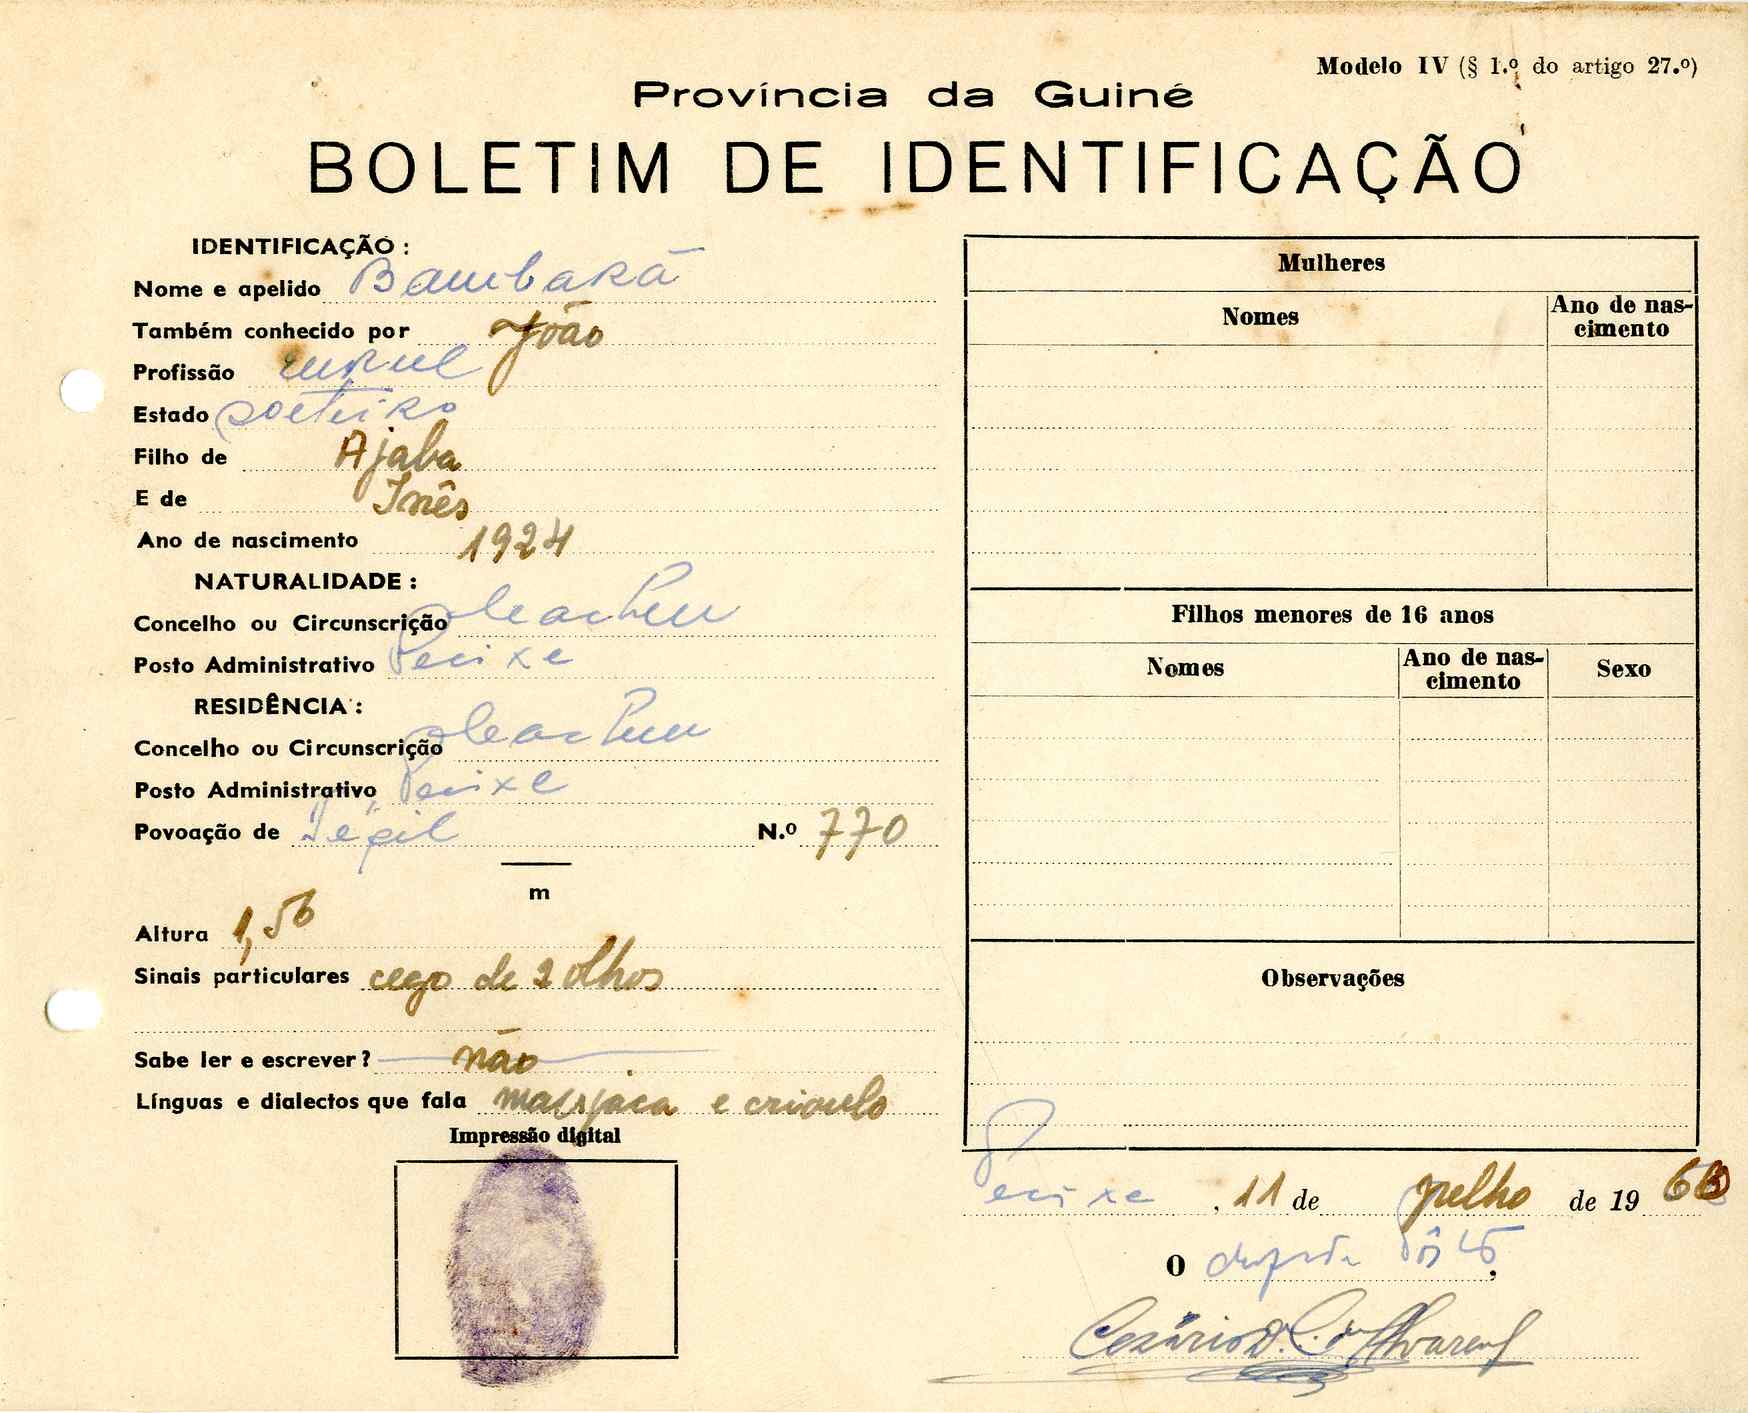 Modelo IV (§ 1.º do artigo 27.º)
Província da Guiné
BOLETIM DE IDENTIFICAÇÃO
IDENTIFICAÇÃO :
Nome e apelido Bambakã
Também conhecido por João
Profissão
Estado solteiro
Filho de Ajaba
E de Inês
Ano de nascimento 1924
NATURALIDADE :
Concelho ou Circunscrição
Posto Administrativo Pecixe
RESIDÊNCIA :
Concelho ou Circunscrição
Posto Administrativo Pecixe
Povoação de
N.º 770
m
Altura 1,56
Sinais particulares cego de 2 olhos
Sabe ler e escrever ? não
Línguas e dialectos que fala manjaca e crioulo
Impressão digital
Mulheres
Nomes
Ano de nas-
cimento
Filhos menores de 16 anos
Nomes
Ano de nas-
cimento
Sexo
Observações
Pecixe, 11 de julho de 19
O